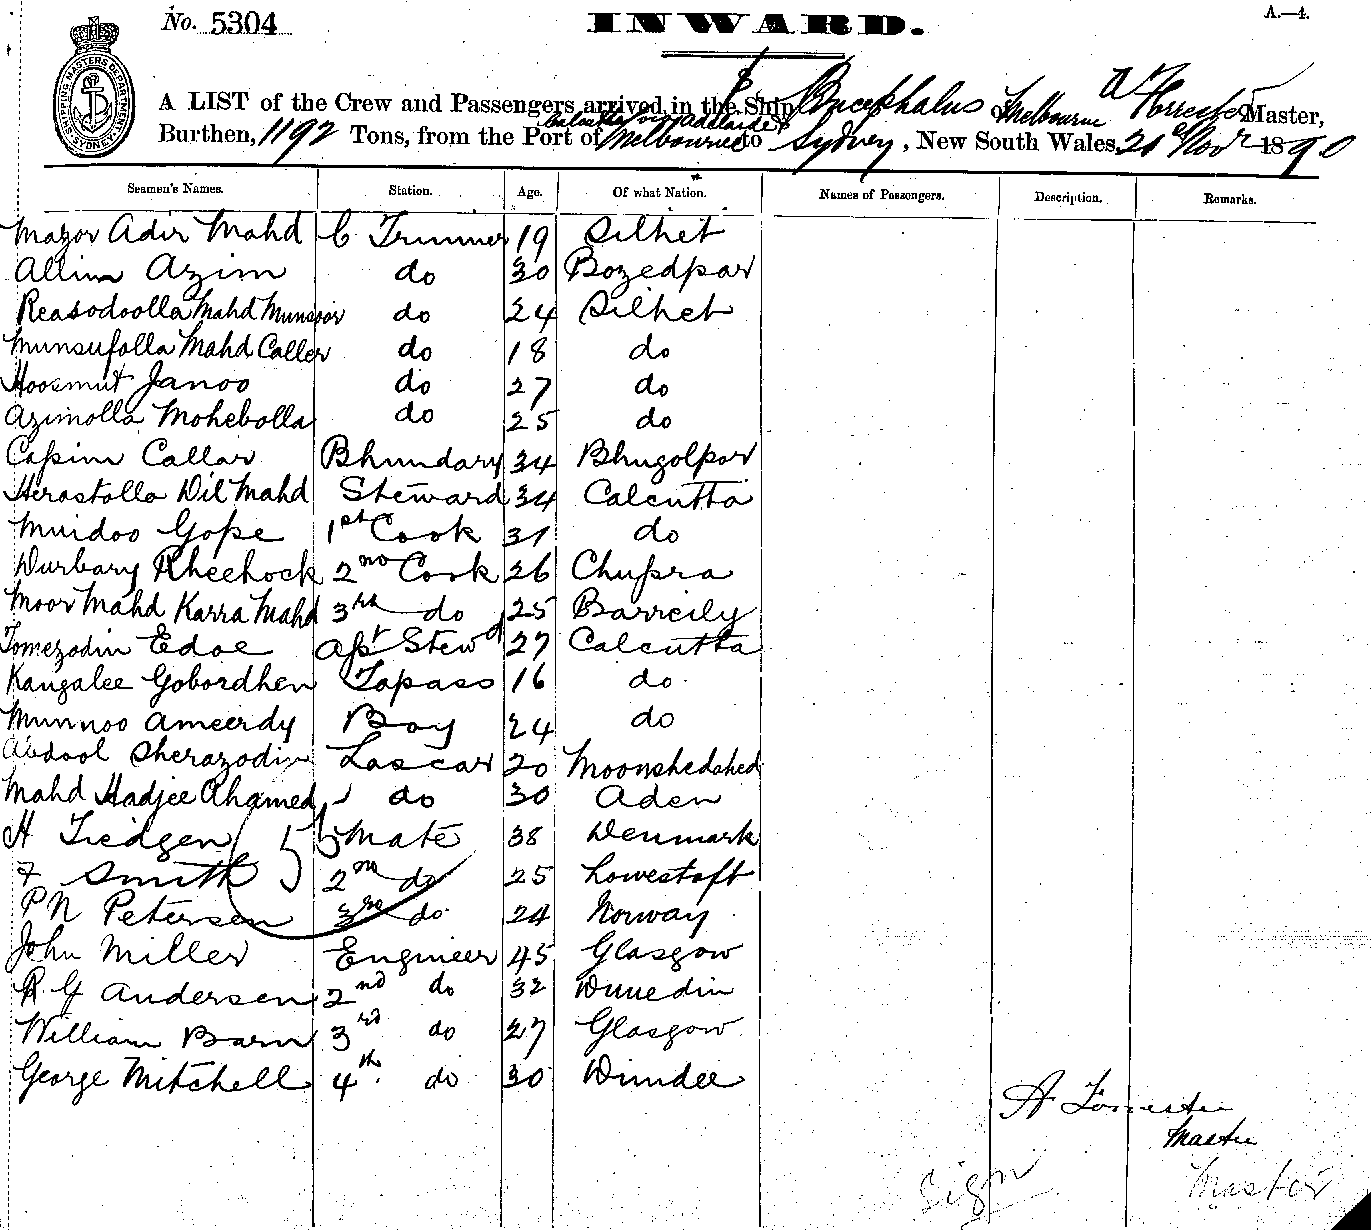 No. 5304
INWARD.
A.—4.
SHIPPING MASTERS DEPARTMENT SYDNEY
A LIST of the Crew and Passengers arrived in the Ship Bucephalus of Melbourne A Forrester Master,
Calcutta via Adelaide &
Burthen, 1192 Tons, from the Port of Melbourne to Sydney, New South Wales, 21st Novr 1890
Seamen's Names. Station. Age. Of what Nation. Names of Passengers. Description. Remarks.
Mazor Adir Mahd C Trimmer 19 Silhet
Allim Azim do 30 Bozedpar
Reasodoolla Mahd Munsoor do 24 Silhet
Munsufolla Mahd Caller do 18 do
Hoosmut Janoo do 27 do
Azimolla Mohebolla do 25 do
Cassim Callar Bhundary 34 Bhugolpor
Herastolla Dil Mahd Steward 34 Calcutta
Muidoo Gope 1st Cook 31 do
Durbary Kheehock 2nd Cook 26 Chupra
Moor Mahd Karra Mahd 3rd do 25 Barreily
Tomezodin Edoe Asst Stewd 27 Calcutta
Kangalee Gobordhen Topass 16 do
Munnoo Ameerdy Boy 24 do
Abdool Sherazodin Lascar 20 Moonshedabed
Mahd Hadjee Ahamed do 30 Aden
H Tiedgen 1st Mate 38 Denmark
F Smith 2nd do 25 Lowestoft
P N Petersen 3rd do 24 Norway
John Miller Engineer 45 Glasgow
R G Andersen 2nd do 32 Dunedin
William Barn 3rd do 27 Glasgow
George Mitchell 4th do 30 Dundee
A Forrester
Master
Sign Master